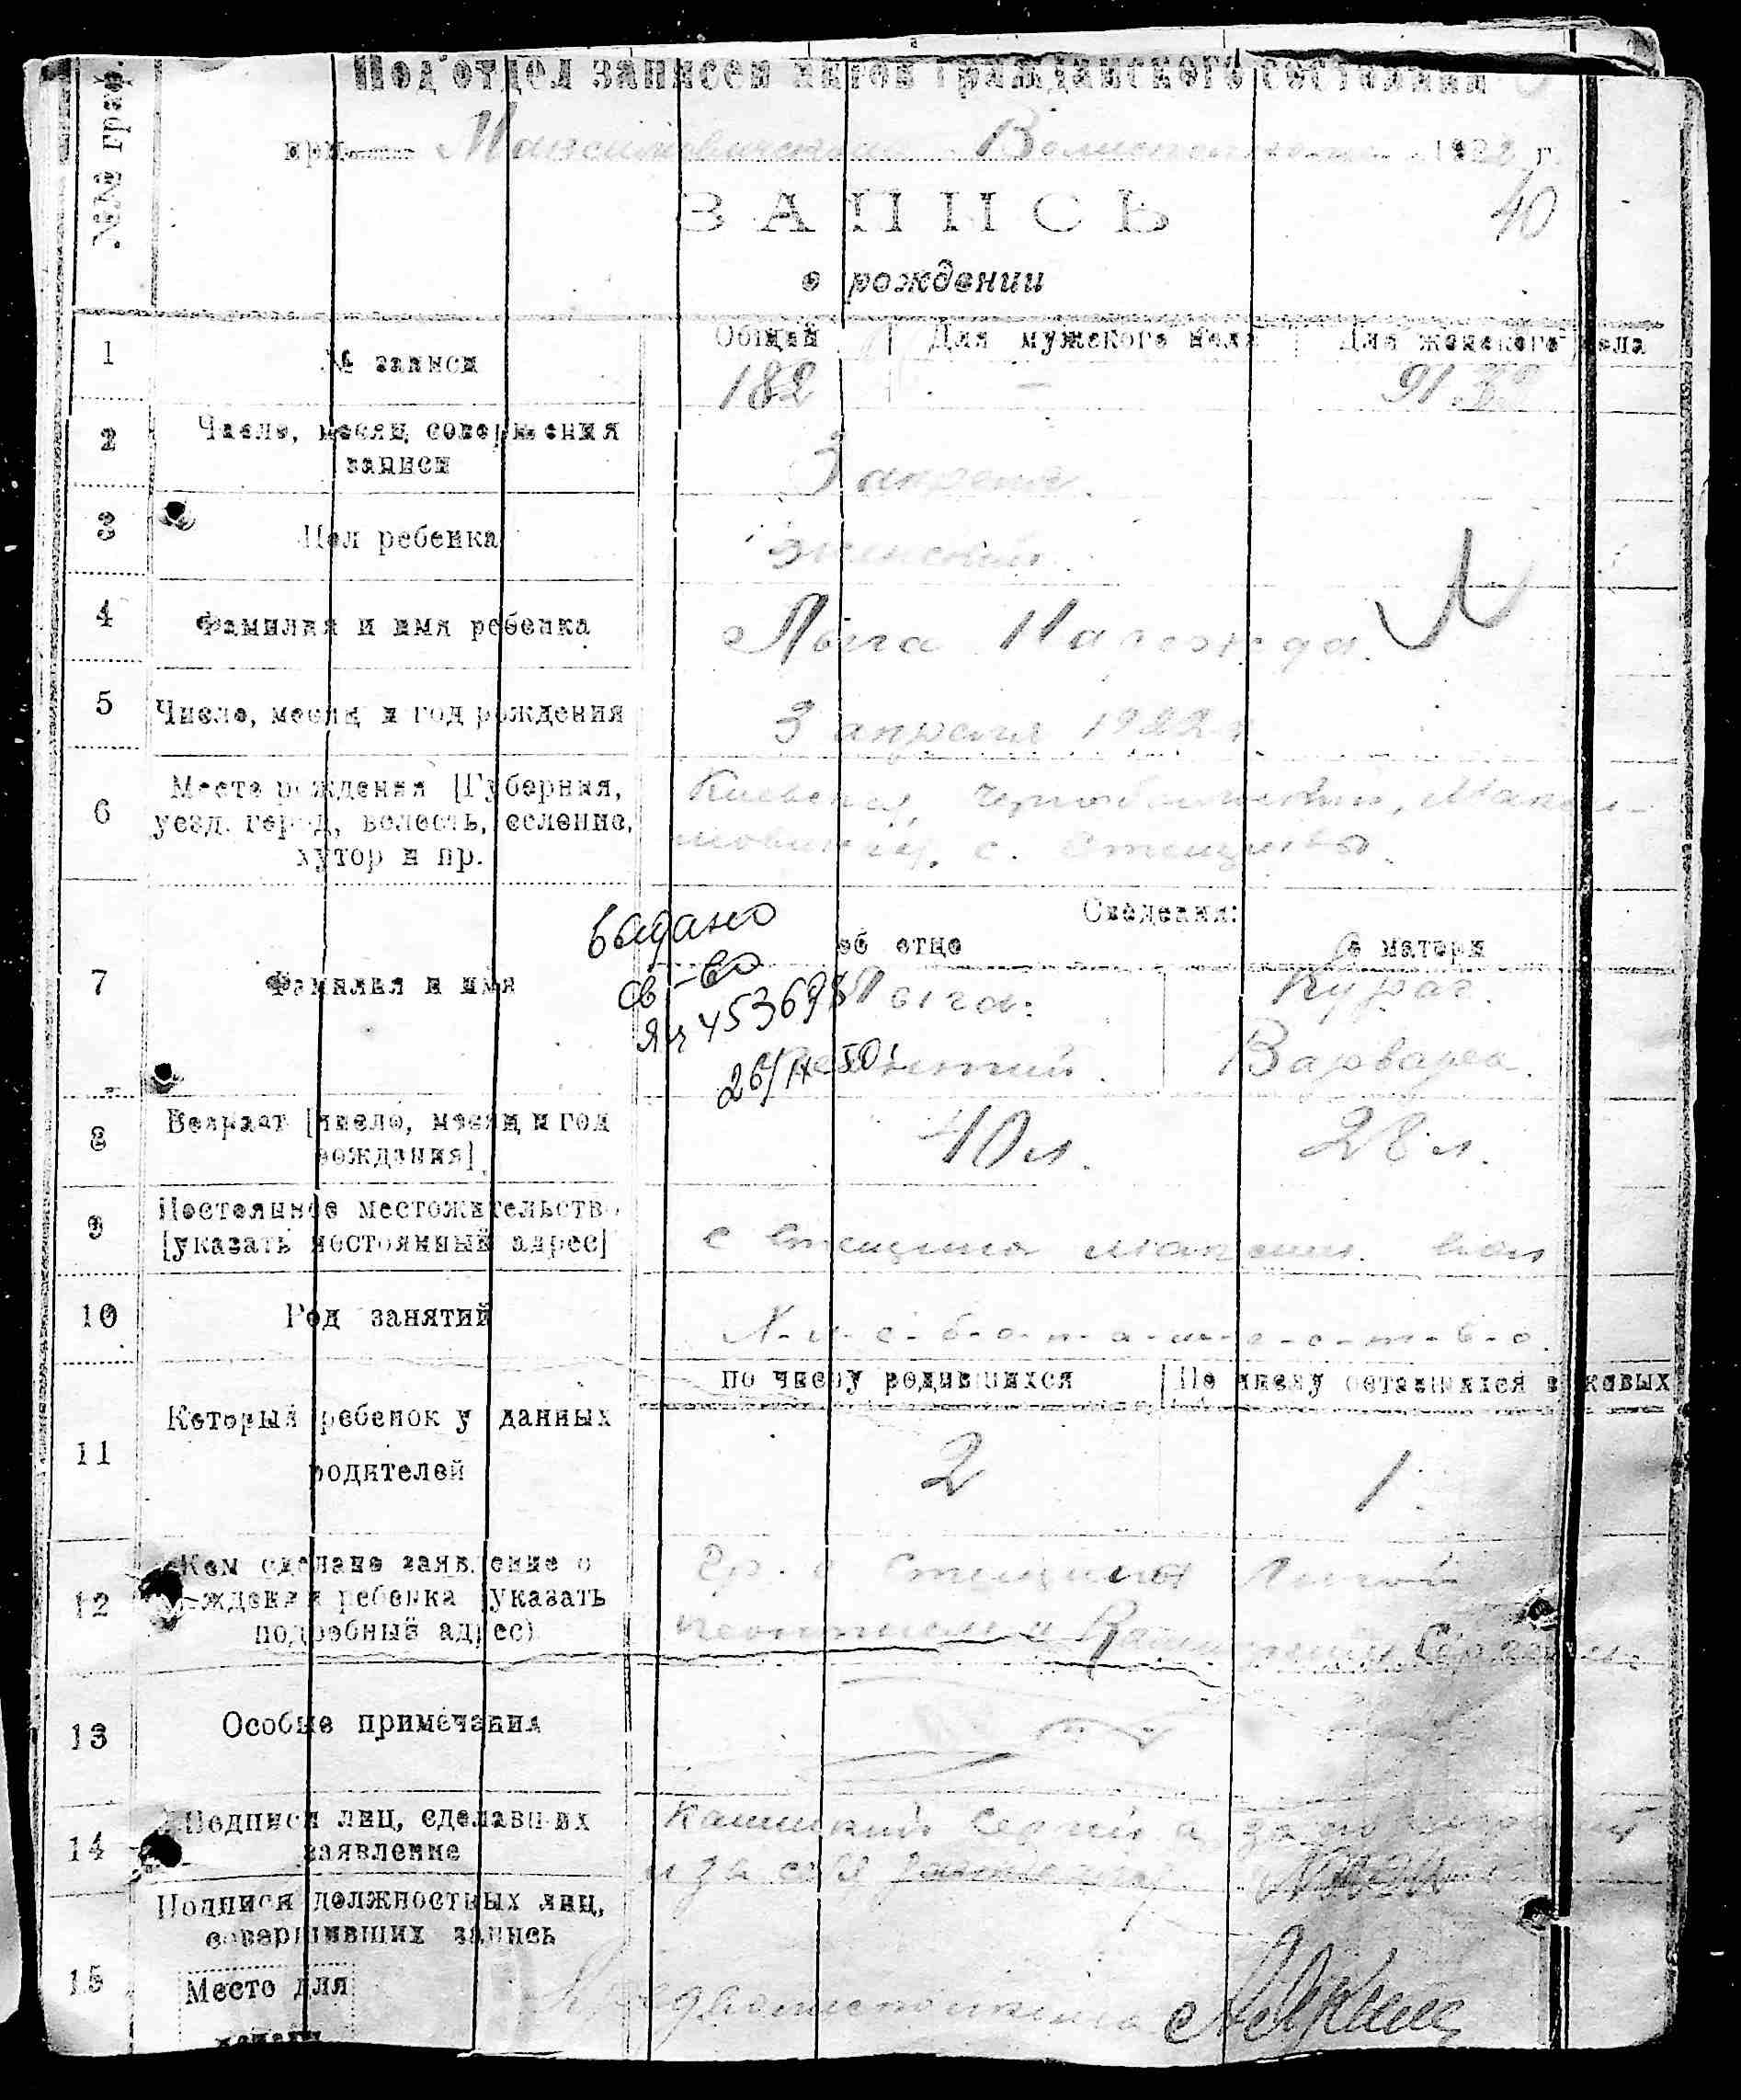 №№ граф.
Под'отдел записей актов гражданского состояния
при Максимовичском Волисполкоме 1922 г.
40
ЗАПИСЬ
о рождении
1 № записи
Общий Для мужского пола Для женского пола
182 - 91
2 Число, месяц совершения
записи
3 апреля
3 Пол ребенка женский
4 Фамилия и имя ребенка Лыга Надежда
5 Число, месяц и год рождения 3 апреля 1922 г
6 Место рождения [Губерния,
уезд, город, волость, селение,
хутор и пр.
Киевская, Чернобыльский, Макси-
мовичск, с. Стещина
Сведения:
об отце о матери
7 Фамилия и имя
Лыга: Курач.
Леонтий. Варвара.
выдано
св-во
26/IX 50
8 Возраст [число, месяц и год
рождения]
40 л. 28 л.
9 Постоянное местожительство
[указать постоянный адрес]
с Стещина Максим. вол
10 Род занятий Х-л-е-б-о-п-а-ш-е-с-т-в-о.
11 Который ребенок у данных
родителей
по числу родившихся По числу оставшихся в живых
2 1
12 Кем сделано заявление о
рождении ребенка (указать
подробный адрес)
Гр. с Стещина Лыгой
Леонтием и Сергеем
13 Особые примечания
14 Подписи лиц, сделавших
заявление
Сергий а за
и за себя
15 Подписи должностных лиц,
совершивших запись
Место для
печати